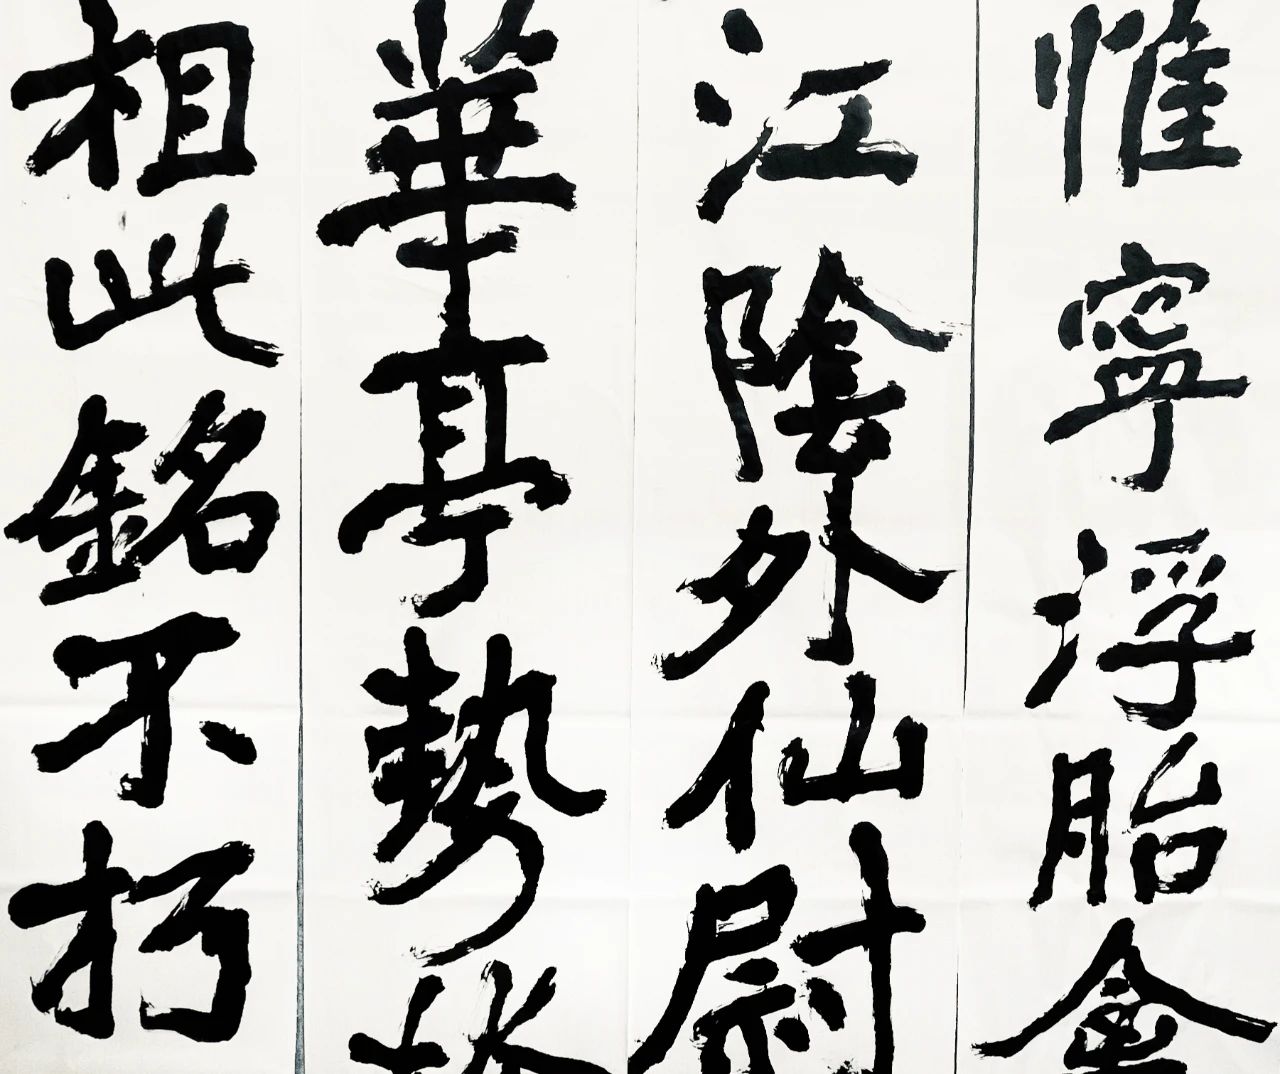 惟寧浮胎禽
江陰外仙尉
華亭勢
相此銘不朽